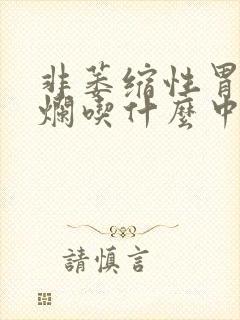 非萎缩性胃
爛喫什麼中
請慎言